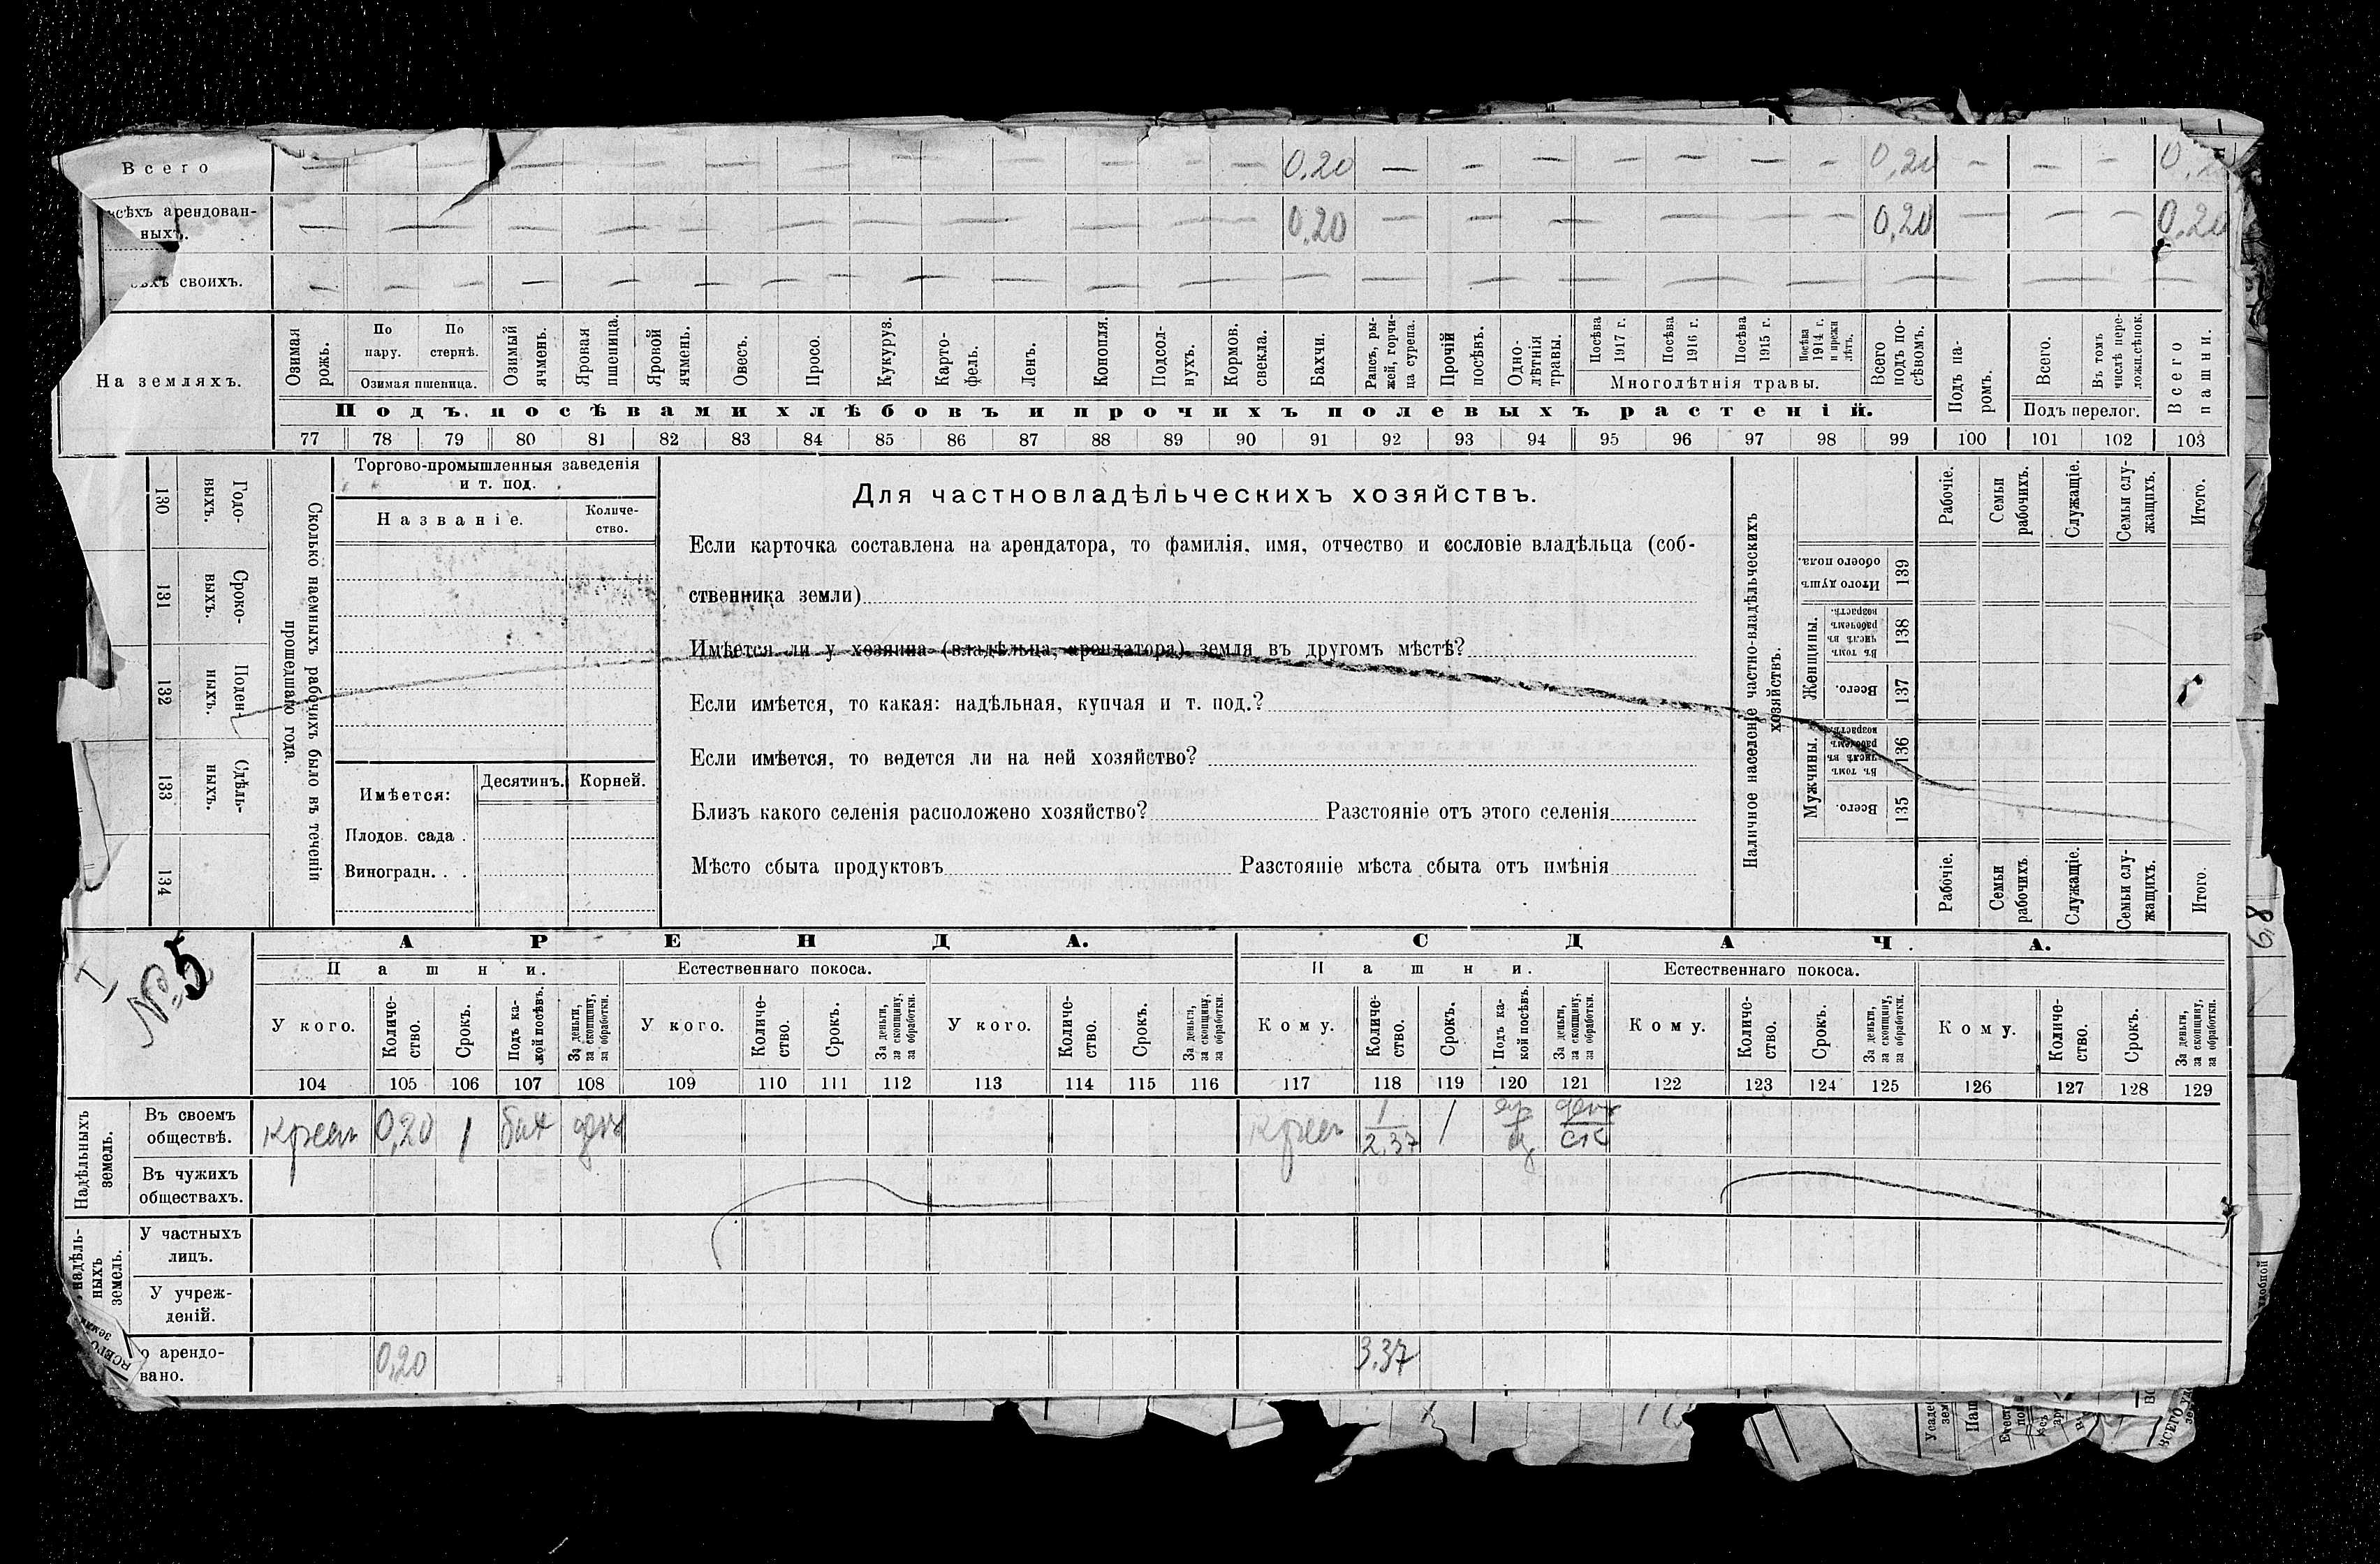 Всего — — — — — — — — — — — — — — 0,20 — — — — — — — 0,20 — — —
всѣхъ арендован-
ныхъ. — — — — — — — — — — — — — — 0,20 — — — — — — — 0,20 — — — 0,20
своихъ. — — — — — — — — — — — — — — — — — — — — — — — — — — —
На земляхъ.
Озимая рожь.
По пару.
По стернѣ.
Озимая пшеница.
Озимый ячмень.
Яровая пшеница.
Яровой ячмень.
Овесъ.
Просо.
Кукуруз.
Карто-
фель.
Ленъ.
Конопля.
Подсол-
нухъ.
Кормов. свекла.
Бахчи.
Рапсъ, ры-
жей, горчи-
ца сурепа.
Прочій посѣвъ.
Одно-
лѣтнія травы.
Посѣва 1917 г.
Посѣва 1916 г.
Посѣва 1915 г.
Посѣва 1914 г. и прежн лѣтъ.
Многолѣтнія травы.
Всего подъ по-
сѣвомъ.
Подъ па-
ромъ.
Всего.
Въ томъ числѣ пере-
лож.сѣнок.
Подъ перелог.
Всего пашни.
Подъ посѣвами хлѣбовъ и прочихъ полевыхъ растеній.
77 78 79 80 81 82 83 84 85 86 87 88 89 90 91 92 93 94 95 96 97 98 99 100 101 102 103
130 Годо-
выхъ.
131 Сроко-
выхъ.
132 Поден-
ныхъ.
133 Сдѣль-
ныхъ.
134
Сколько наемныхъ рабочихъ было въ теченіи
прошедшаго года.
Торгово-промышленныя заведенія
и т. под.
Названіе.
Количе-
ство.
Имѣется:
Десятинъ.
Корней.
Плодов. сада .
Виноградн. . .
Для частновладѣльческихъ хозяйствъ.
Если карточка составлена на арендатора, то фамилія, имя, отчество и сословіе владѣльца (соб-
ственника земли)
Имѣется ли у хозяина (владѣльца, арендатора) земля въ другомъ мѣстѣ?
Если имѣется, то какая: надѣльная, купчая и т. под.?
Если имѣется, то ведется ли на ней хозяйство?
Близъ какого селенія расположено хозяйство? Разстояніе отъ этого селенія
Мѣсто сбыта продуктовъ Разстояніе мѣста сбыта отъ имѣнія
Наличное населеніе частно-владѣльческихъ
хозяйствъ.
Рабочіе.
Семьи рабочихъ.
Служащіе.
Семьи слу-
жащихъ.
Итого.
Итого душъ обоего пола. 139
Женщины.
Въ томъ числѣ въ рабочемъ возрастѣ. 138
Всего. 137
Мужчины.
Въ томъ числѣ въ рабочемъ возрастѣ. 136
Всего. 135
Рабочіе.
Семьи рабочихъ
Служащіе.
Семьи слу-
жащихъ.
Итого.
I
№ 5
АРЕНДА.
СДАЧА.
Пашни.
Естественнаго покоса.
Пашни.
Естественнаго покоса.
У кого.
Количе-
ство.
Срокъ.
Подъ ка-
кой посѣвъ.
За деньги, за скопщину, за обработки.
У кого.
Количе-
ство.
Срокъ.
За деньги, за скопщину, за обработки.
У кого.
Количе-
ство.
Срокъ.
За деньги, за скопщину, за обработки.
Кому.
Количе-
ство.
Срокъ.
Подъ ка-
кой посѣвъ.
За деньги, за скопщину, за обработки.
Кому.
Количе-
ство.
Срокъ.
За деньги, за скопщину, за обработки.
Кому.
Количе-
ство.
Срокъ.
За деньги, за скопщину, за обработки.
104 105 106 107 108 109 110 111 112 113 114 115 116 117 118 119 120 121 122 123 124 125 126 127 128 129
Надѣльныхъ земель.
Въ своемъ
обществѣ.
0,20 1 бах 1
2,37 1
Въ чужихъ
обществахъ.
надѣль-
ныхъ
земель.
У частныхъ
лицъ.
У учреж-
деній.
всего
арендо-
вано.
0,20 3.37
68